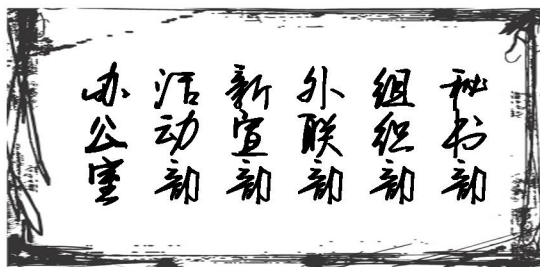 秘书部
组织部
外联部
新宣部
活动部
办公室